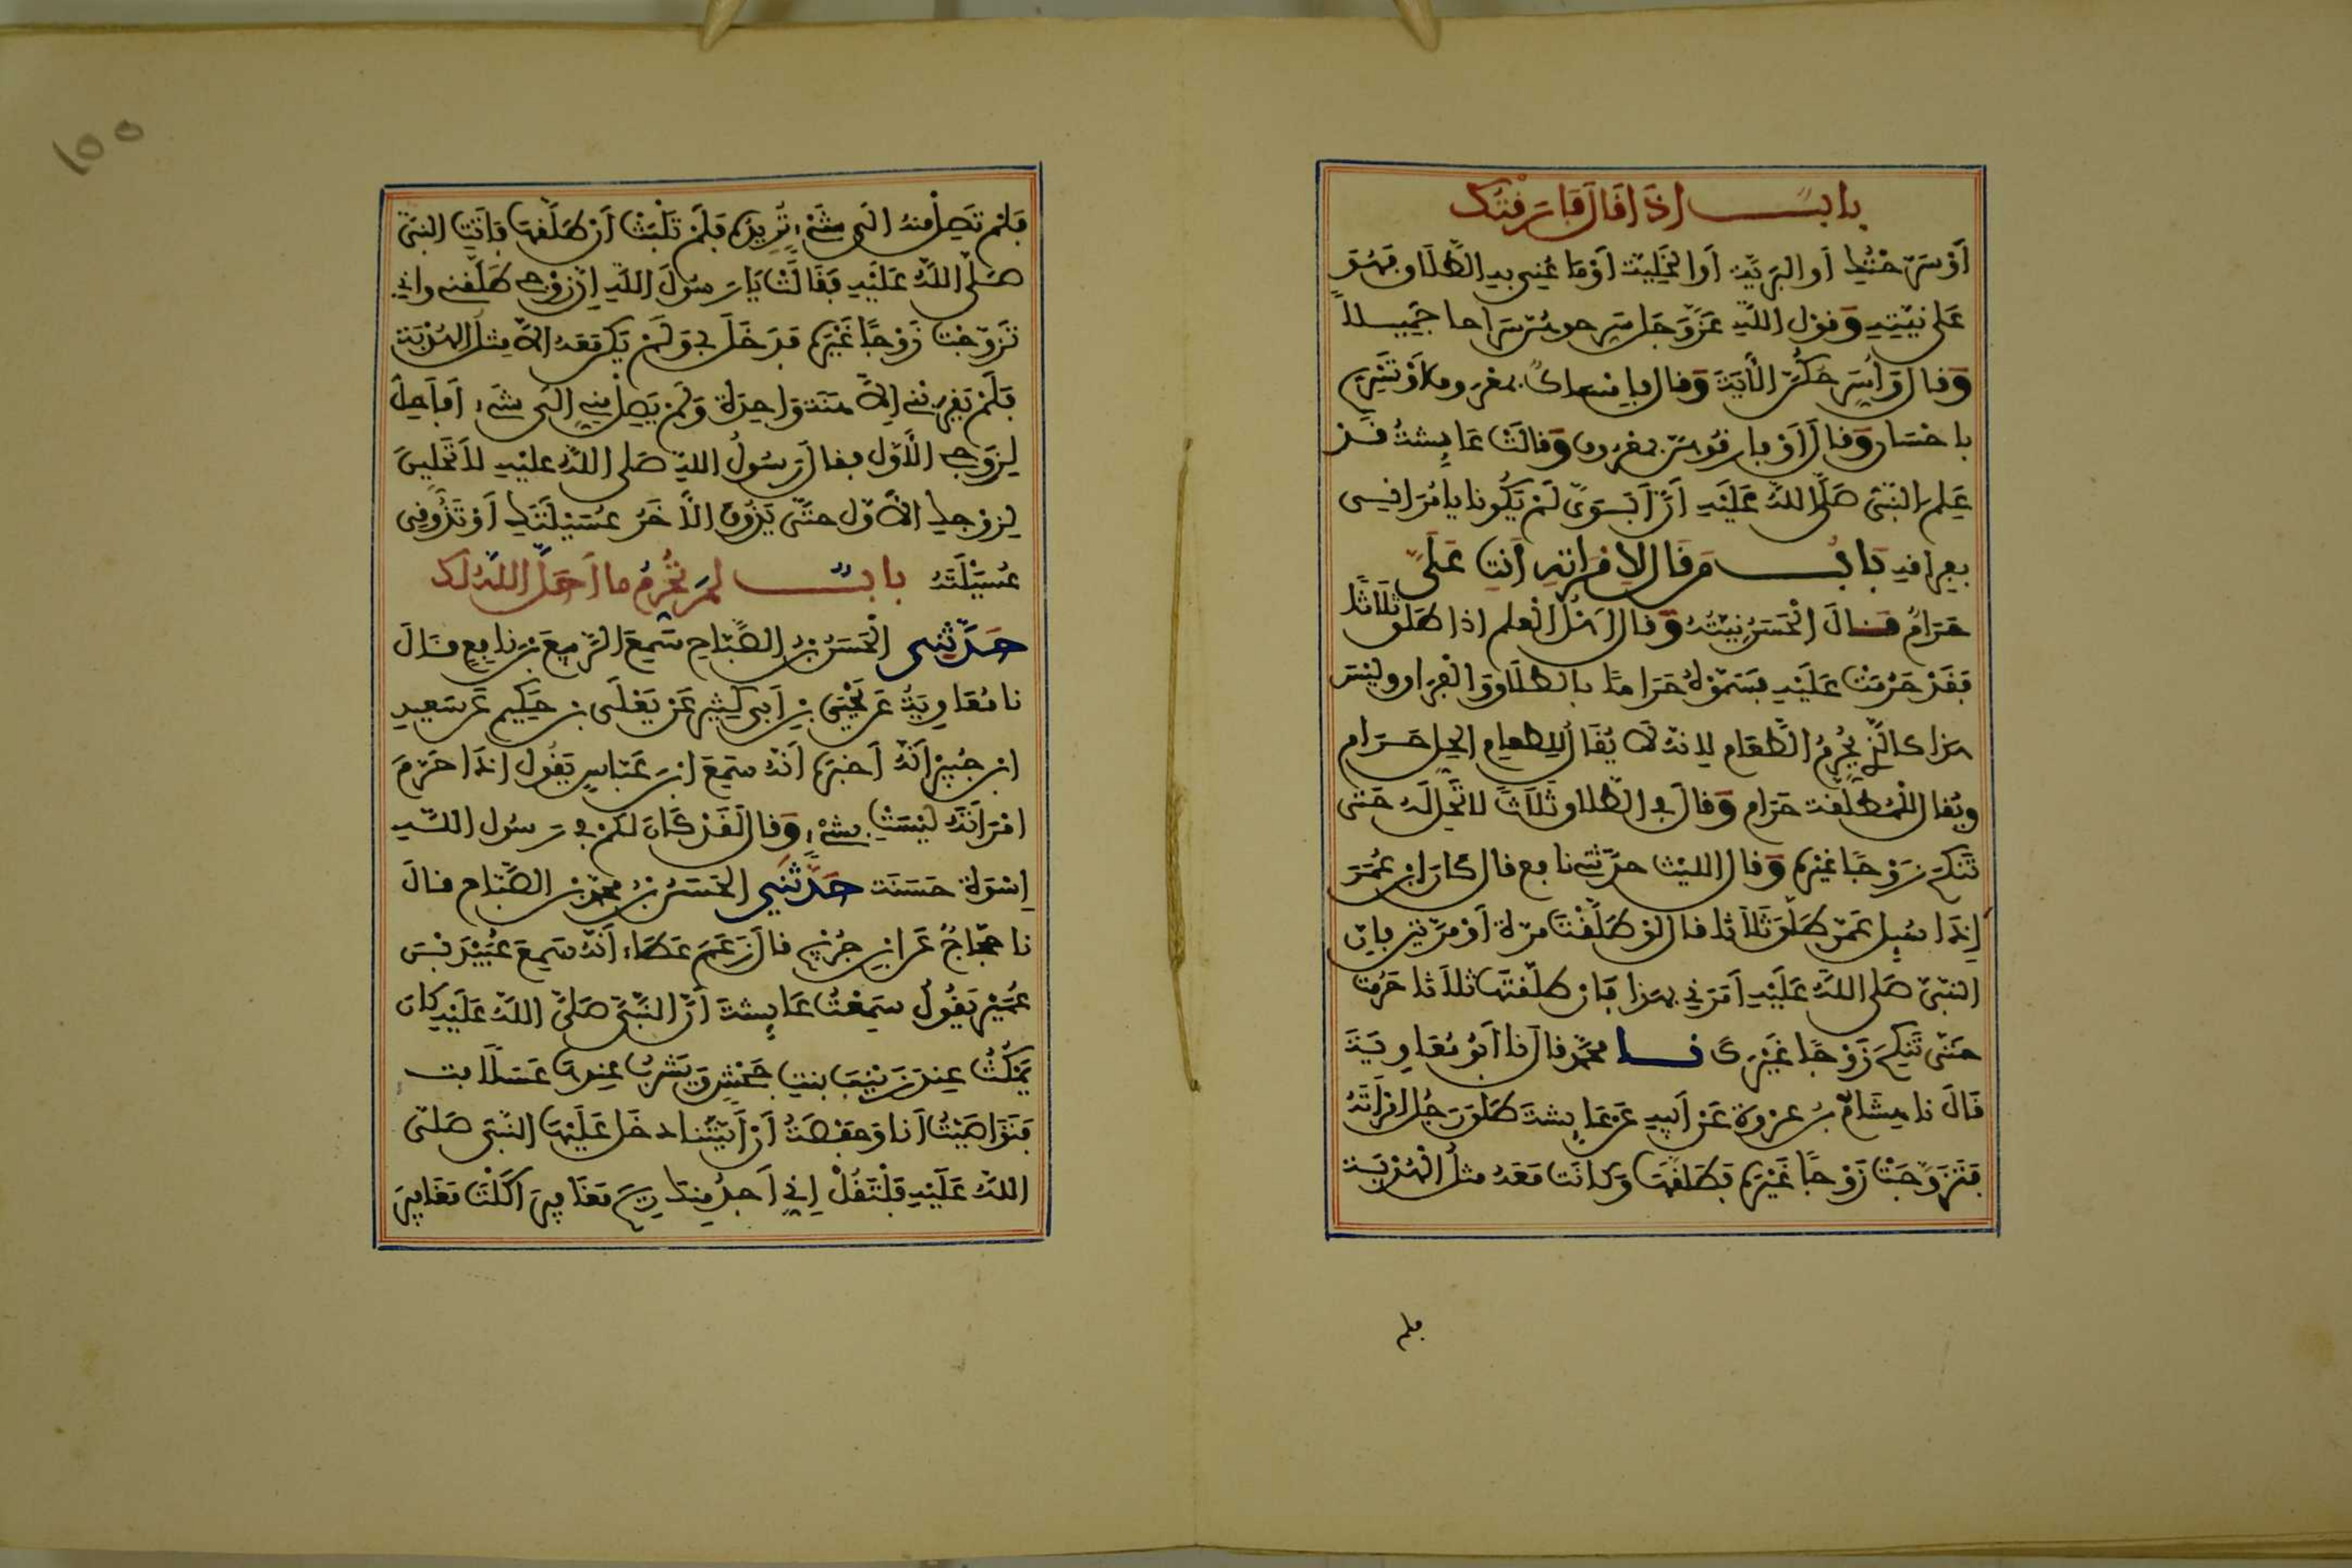 باب اذا قال فارقتك
أو سرحتك أو البرية أو الخلية أو ما عني به الطلاق فهو
على نيته وقول الله عز وجل سرحوهن سراحا جميلا
وقال وأسرحكن الآية وقال فإمساك بمعروف أو تسريح
باحسان وقال أو فارقوهن بمعروف وقالت عايشة قد
علم النبي صلى الله عليه أن أبوي لم يكونا يامراني
بفراقه باب من قال لامراته أنت علي
حرام قال الحسن نيته وقال اهل العلم اذا طلق ثلاثا
فقد حرمت عليه فسموه حراما بالطلاق والفراق وليس
هذا كالذي يحرم الطعام لانه لا يقال للطعام الحل حرام
ويقال للمطلقة حرام وقال في الطلاق ثلاثا لا تحل له حتى
تنكح زوجا غيره وقال الليث حدثني نافع قال كان ابن عمر
إذا سيل عمن طلق ثلاثا قال لو طلقت مرة أو مرتين فإن
النبي صلى الله عليه أمرني بهذا فإن طلقتها ثلاثا حرمت
حتى تنكح زوجا غيرك نا محمد قال نا أبو معاوية
قال نا هشام بن عروة عن أبيه عن عايشة طلق رجل امراته
فتزوجت زوجا غيره فطلقها وكانت معه مثل الهدبة
فلم
١٥٥
فلم تصل منه الى شيء تريده فلم تلبث أن طلقها فأتت النبي
صلى الله عليه فقالت يا رسول الله إن زوجي طلقني واني
تزوجت زوجا غيره فدخل بي ولم يكن معه الا مثل الهدبة
فلم يقربني إلا هنة واحدة ولم يصل مني الى شيء أفأحل
لزوجي الأول فقال رسول الله صلى الله عليه لا تحلين
لزوجك الأول حتى يذوق الآخر عسيلتك أو تذوقي
عسيلته باب لم تحرم ما أحل الله لك
حدثني الحسن بن الصباح سمع الربيع بن نافع قال
نا معاوية عن يحيى بن أبي كثير عن يعلى بن حكيم عن سعيد
ابن جبير أنه أخبره أنه سمع ابن عباس يقول اذا حرم
امراته ليست بشيء وقال لقد كان لكم في رسول الله
إسوة حسنة حدثني الحسن بن محمد بن الصباح قال
نا حجاج عن ابن جريج قال زعم عطاء أنه سمع عبيد بن
عمير يقول سمعت عايشة أن النبي صلى الله عليه كان
يمكث عند زينب بنت جحش ويشرب عندها عسلا
فتواصيت أنا وحفصة أن أيتنا دخل عليها النبي صلى
الله عليه فلتقل إني أجد منك ريح مغافير اكلت مغافير